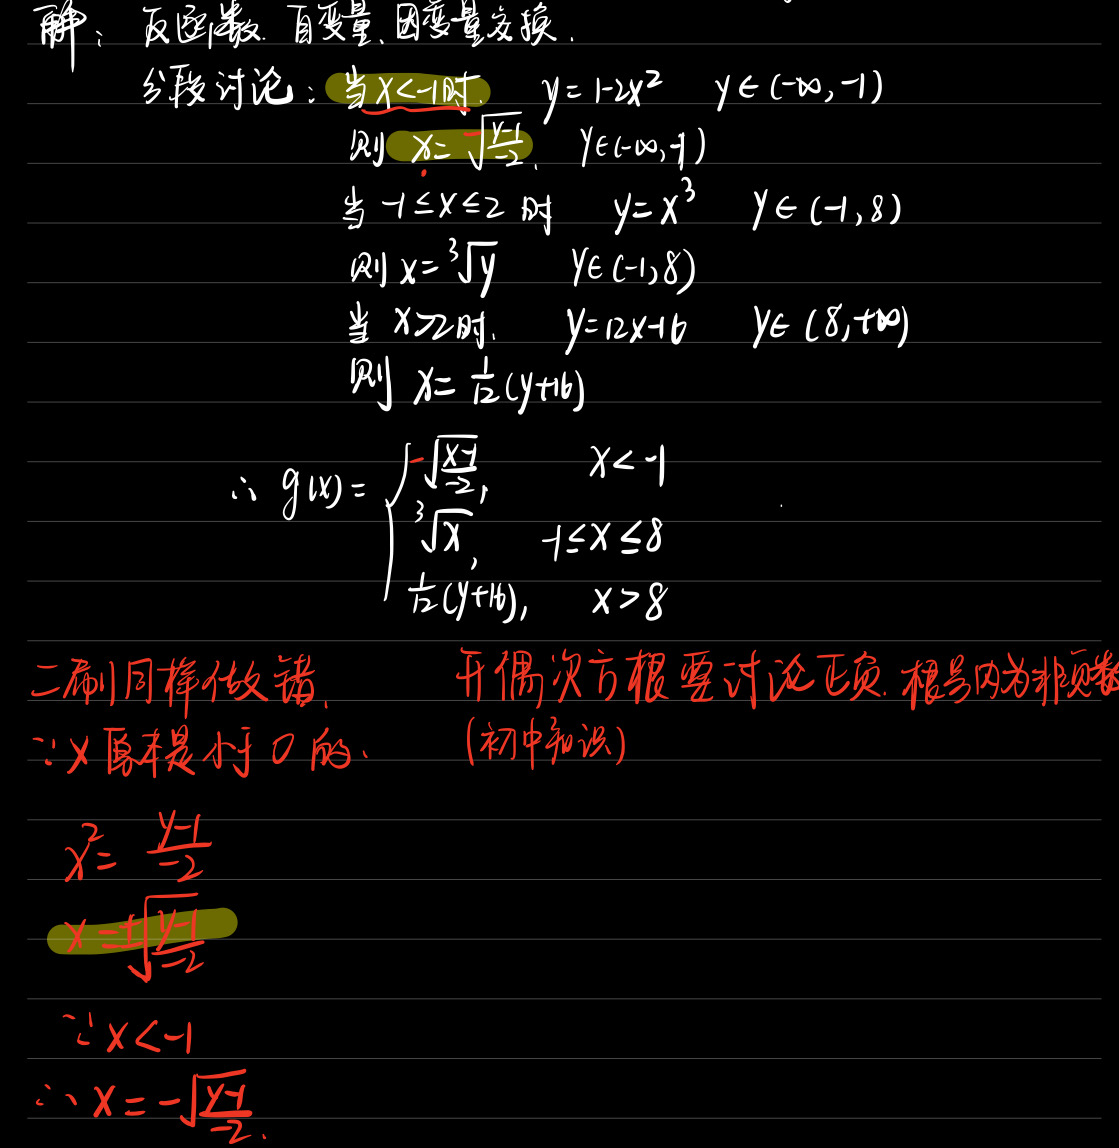 解：反函数.自变量、因变量交换.
分段讨论：当x<-1时. y=1-2x² y∈(-∞,-1)
则 x=-√((y-1)/-2), y∈(-∞,-1)
当 -1≤x≤2 时 y=x³ y∈(-1,8)
则 x=³√y y∈(-1,8)
当 x>2时. y=12x-16 y∈(8,+∞)
则 x=1/12(y+16)
∴ g(x)= { -√((x-1)/-2), x<-1
³√x, -1≤x≤8
1/12(y+16), x>8
二刷同样做错. 开偶次方根要讨论正负.根号内为非负数
∵x原本是小于0的. (初中知识)
x²=(y-1)/-2
x=±√((y-1)/-2)
∵x<-1
∴x=-√((y-1)/-2).